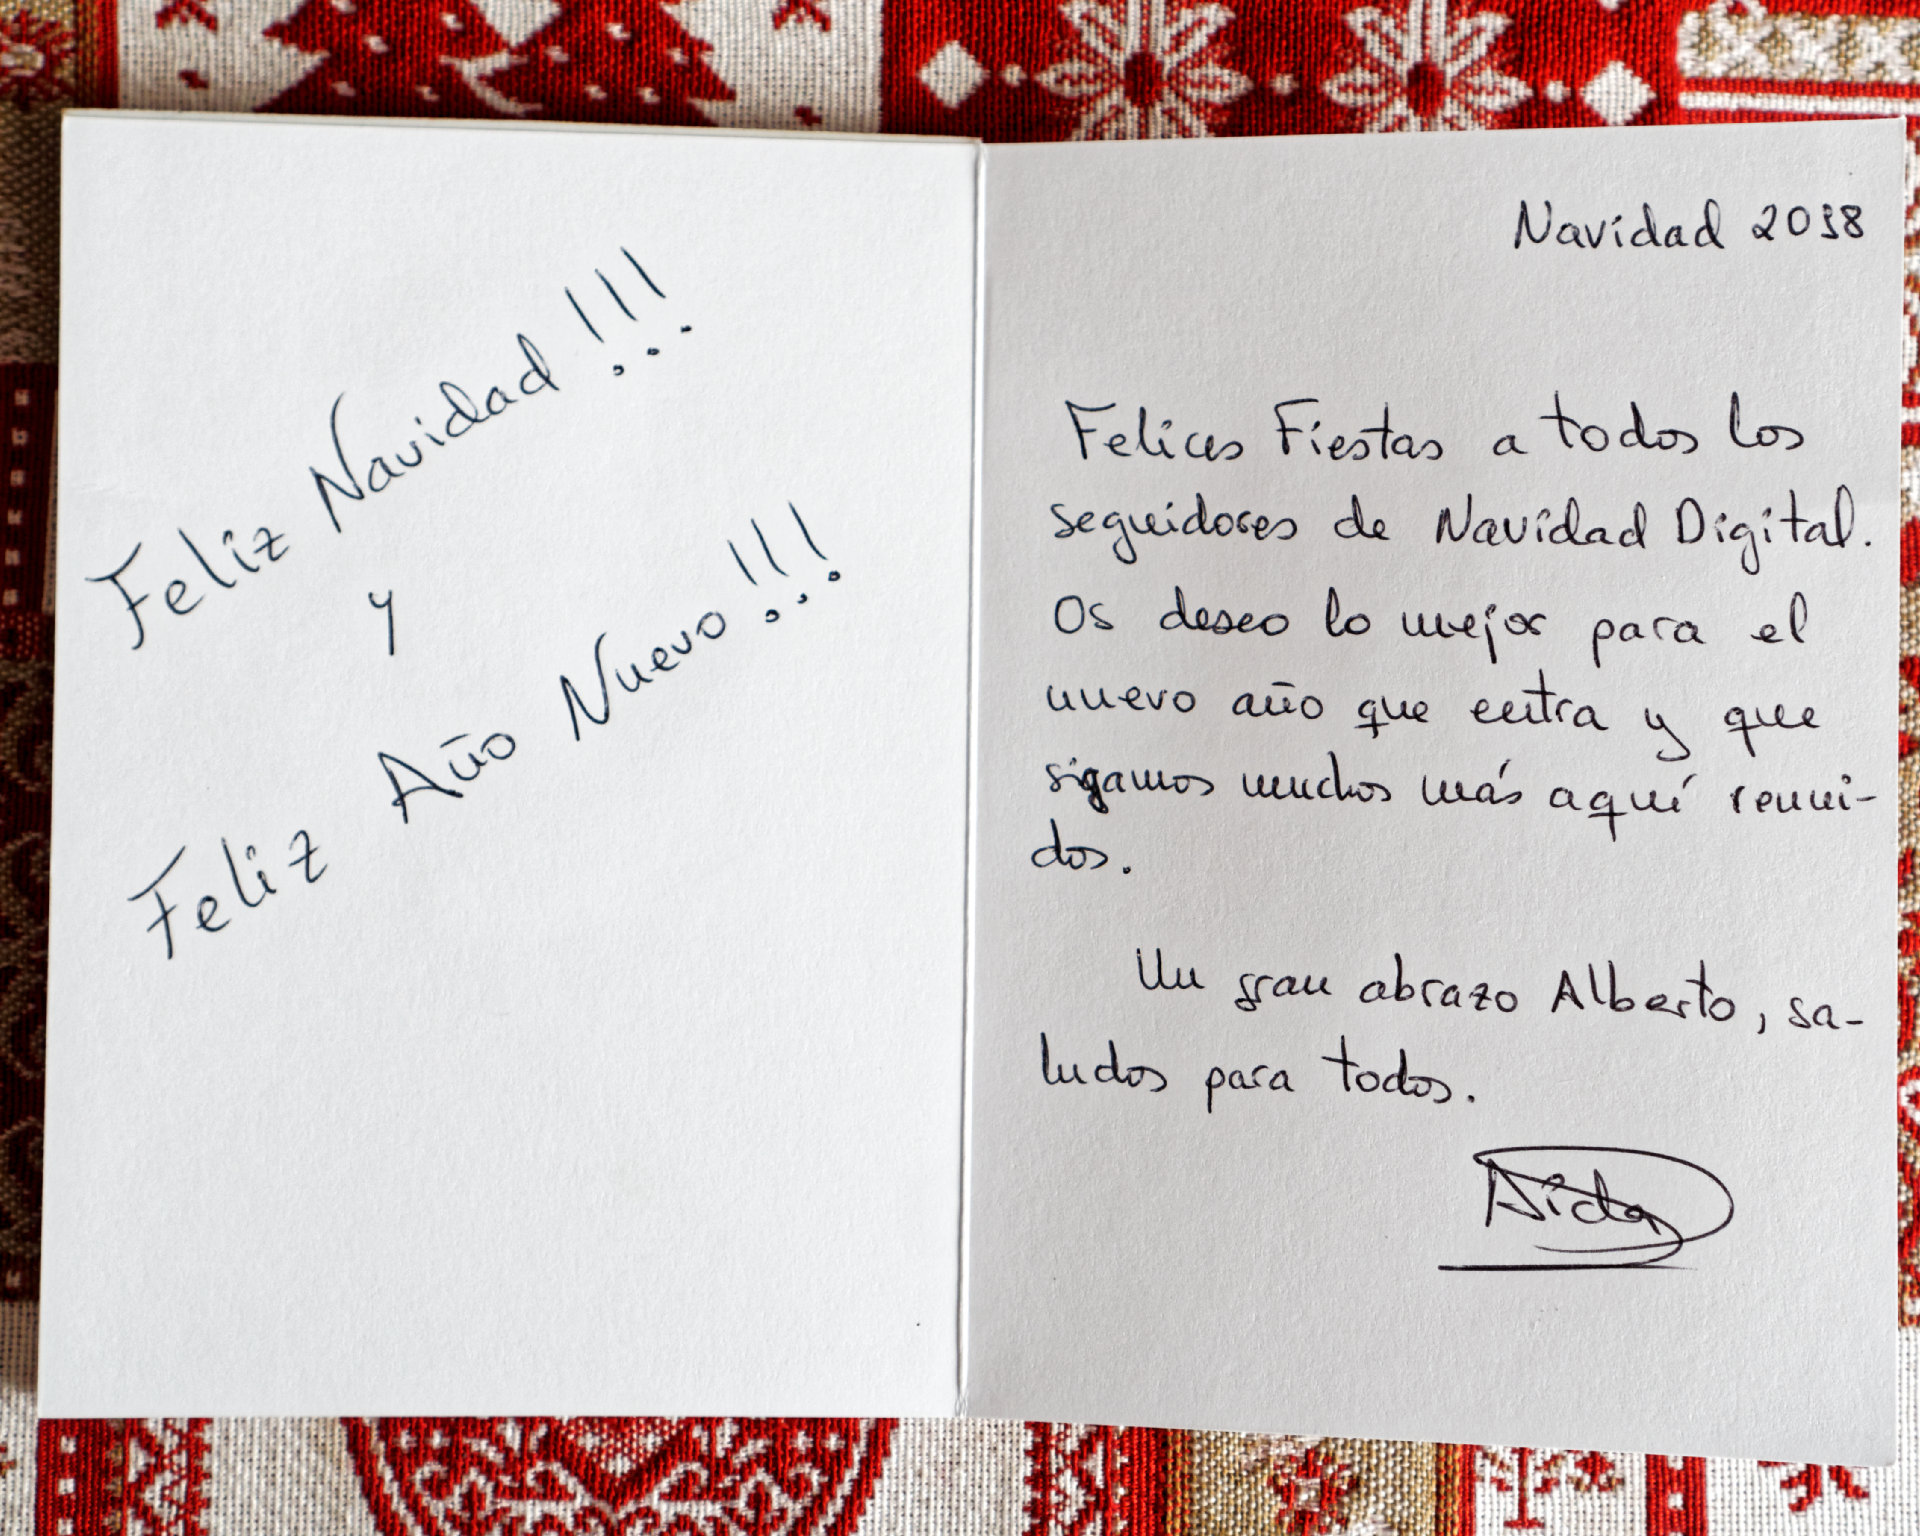 Feliz Navidad!!!
y
Feliz Año Nuevo!!!
Navidad 2018
Felices Fiestas a todos los
seguidores de Navidad Digital.
Os deseo lo mejor para el
nuevo año que entra y que
sigamos muchos más aquí reuni-
dos.
Un gran abrazo Alberto, sa-
ludos para todos.
Aida